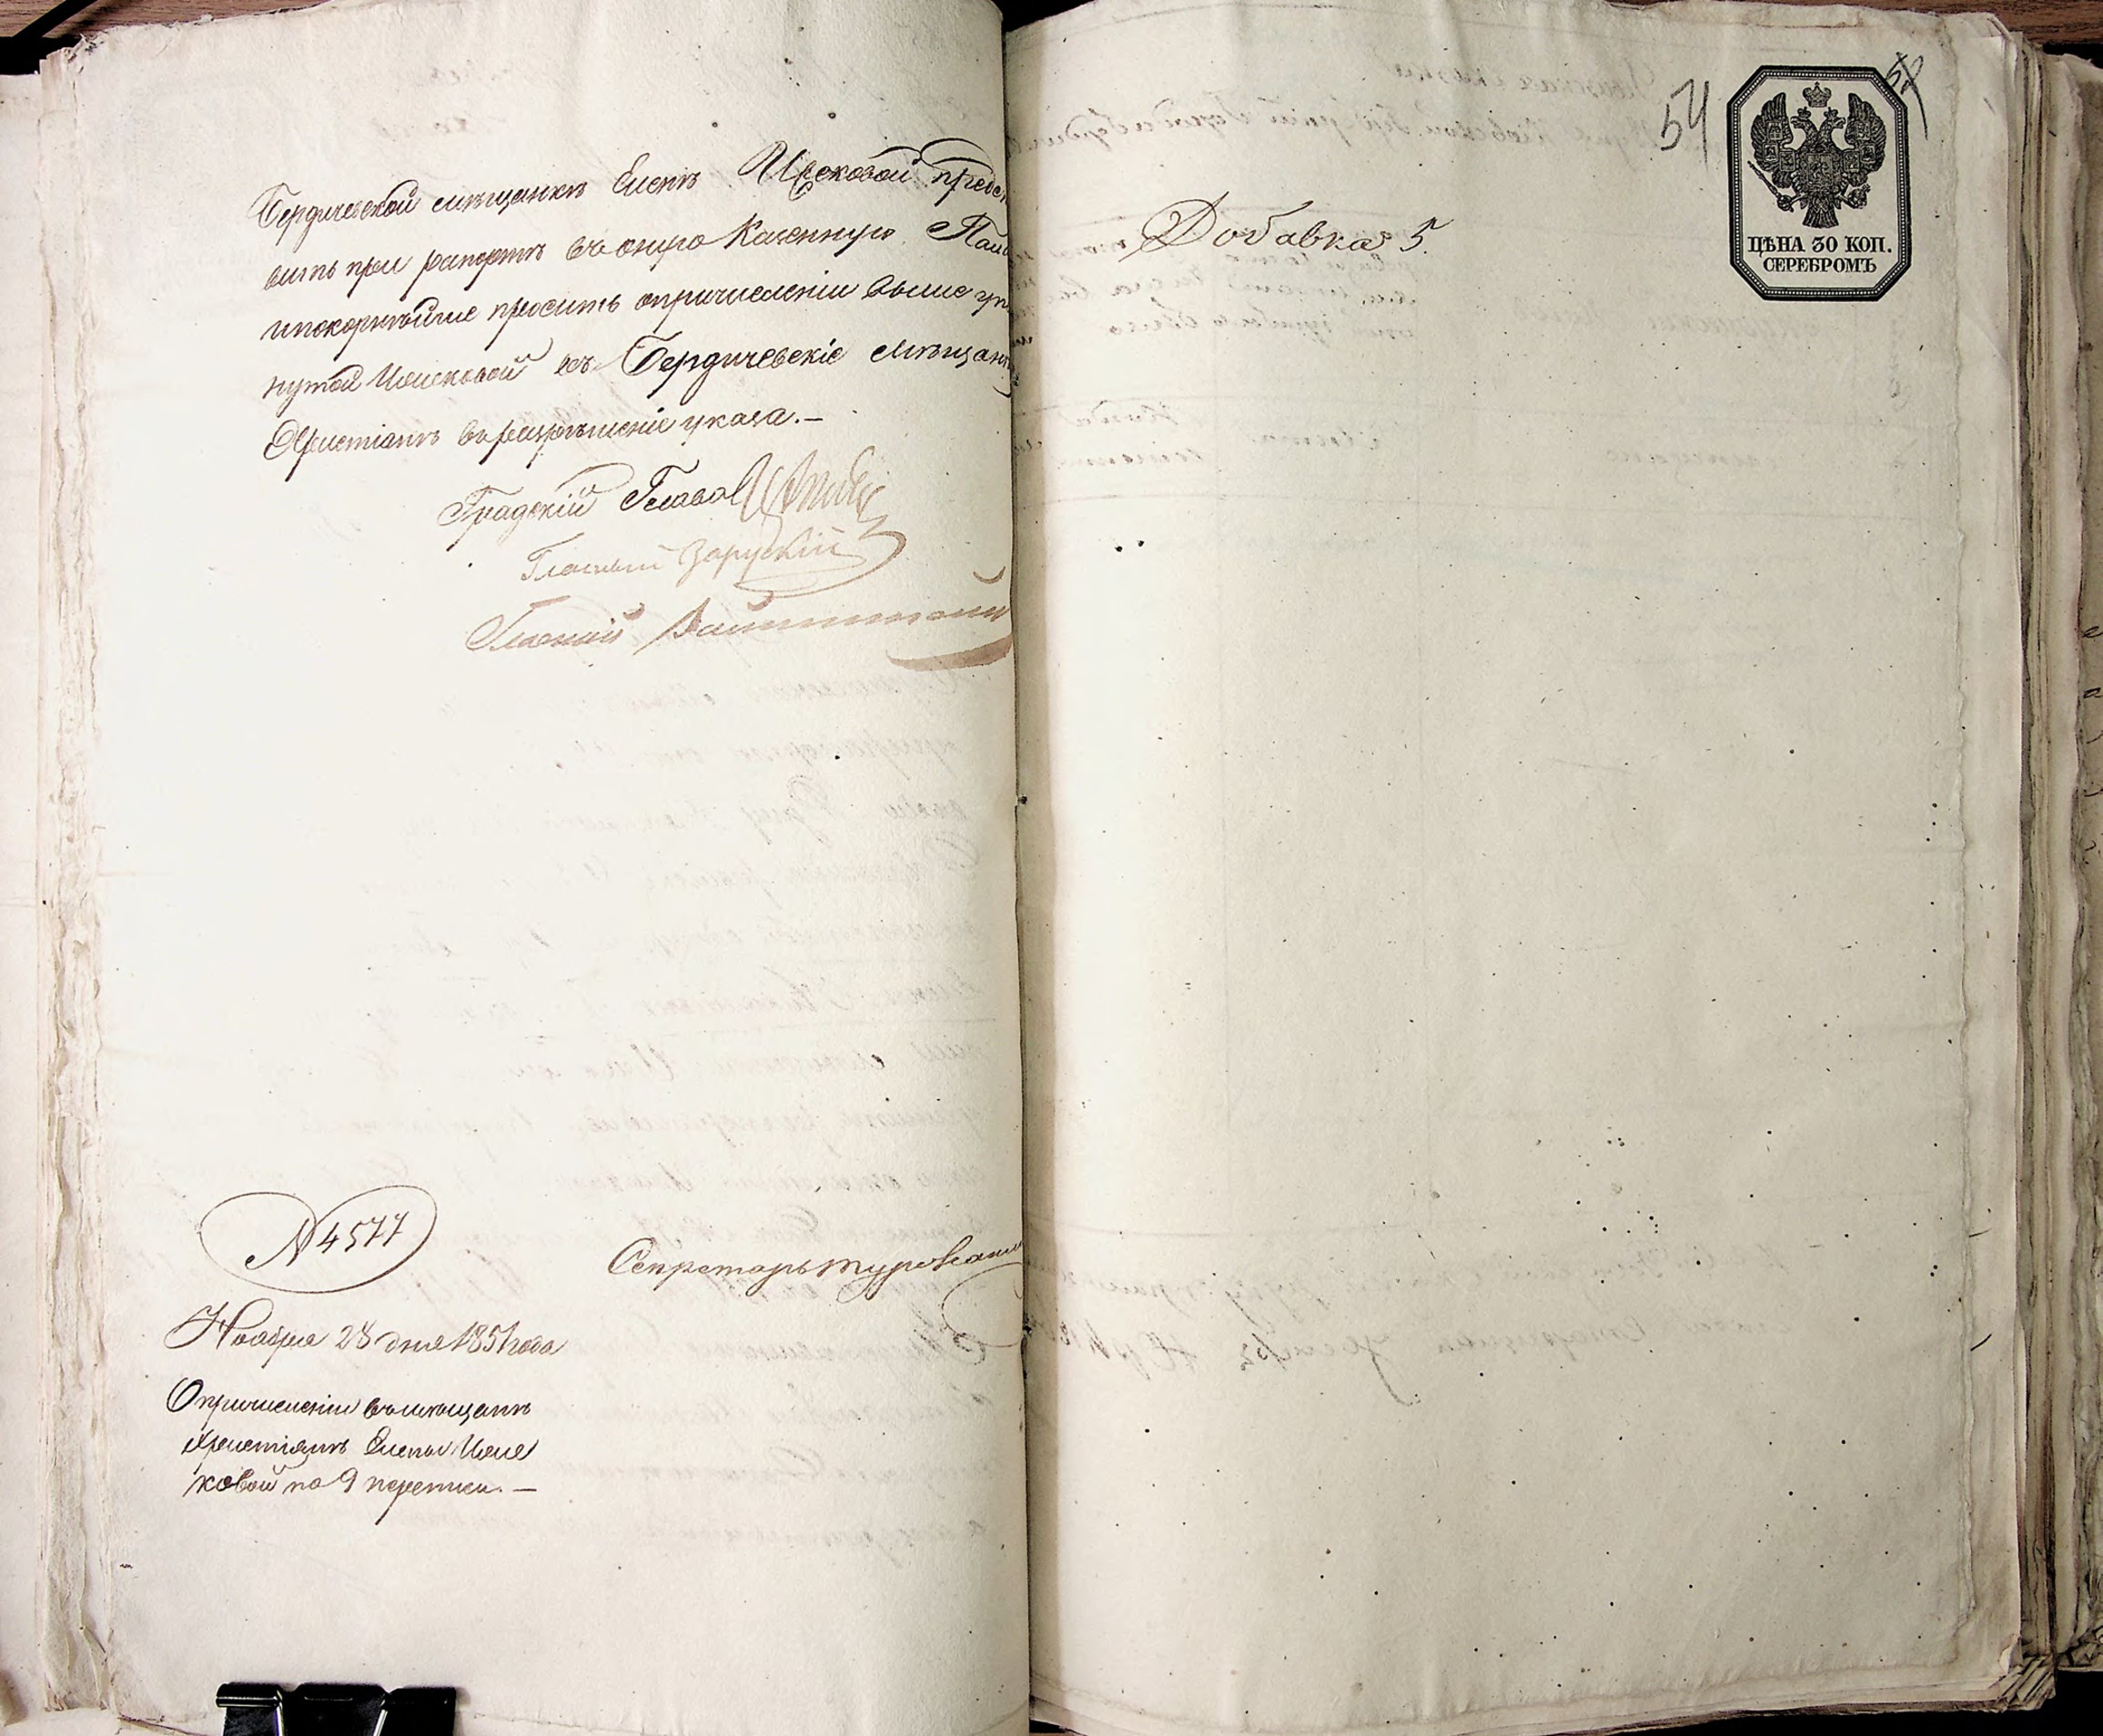 Бердичевской мѣщанкѣ Еленѣ предс
вить при рапортѣ въ оную Казенную Пала
и покорнѣйше просить о причисленіи выше упо
нутой въ Бердичевскіе Мѣщане
Христіанѣ въ разрѣшеніе указа.—
Градскій Глава
Гласный Зарускій
Гласный
N 4577
Секретарь Туровскій
Ноября 28 дня 1851 года
О причисленіи въ мѣщане
Христіанѣ Елены
ковой по 9 переписи.—
54
Добавка 5.
ЦѢНА 30 КОП.
СЕРЕБРОМЪ